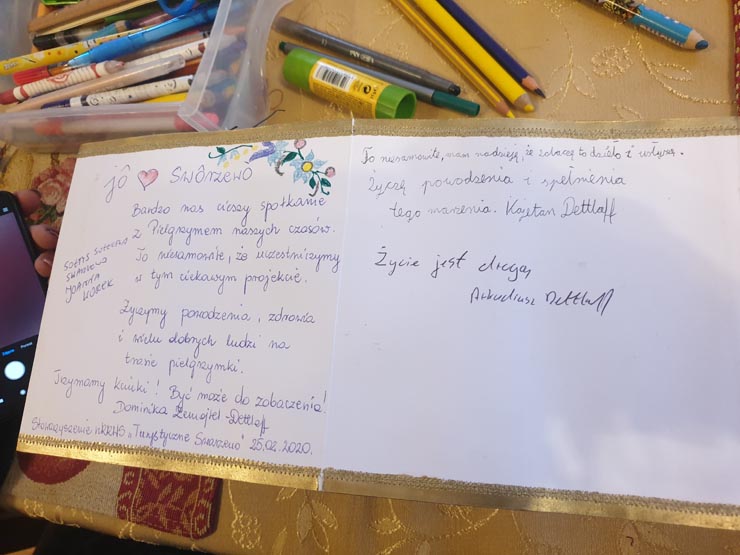 jô ♥ Swôrzewò
Bardzo nas cieszy spotkanie
z Pielgrzymem naszych czasów.
To niesamowite, że uczestniczymy
w tym ciekawym projekcie.
Życzymy powodzenia, zdrowia
i wielu dobrych ludzi na
trasie pielgrzymki.
Trzymamy kciuki! Być może do zobaczenia!
Dominika Żemojtel-Dettlaff
Stowarzyszenie "Turystyczne Swarzewo" 25.02.2020.
SOŁTYS SOŁECTWA
SWARZEWO
JOANNA
To niesamowite, mam nadzieję, że zobaczę to dzieło i usłyszę.
Życzę powodzenia i spełnienia
tego marzenia. Kajetan Dettlaff
Życie jest drogą
Arkadiusz Dettlaff